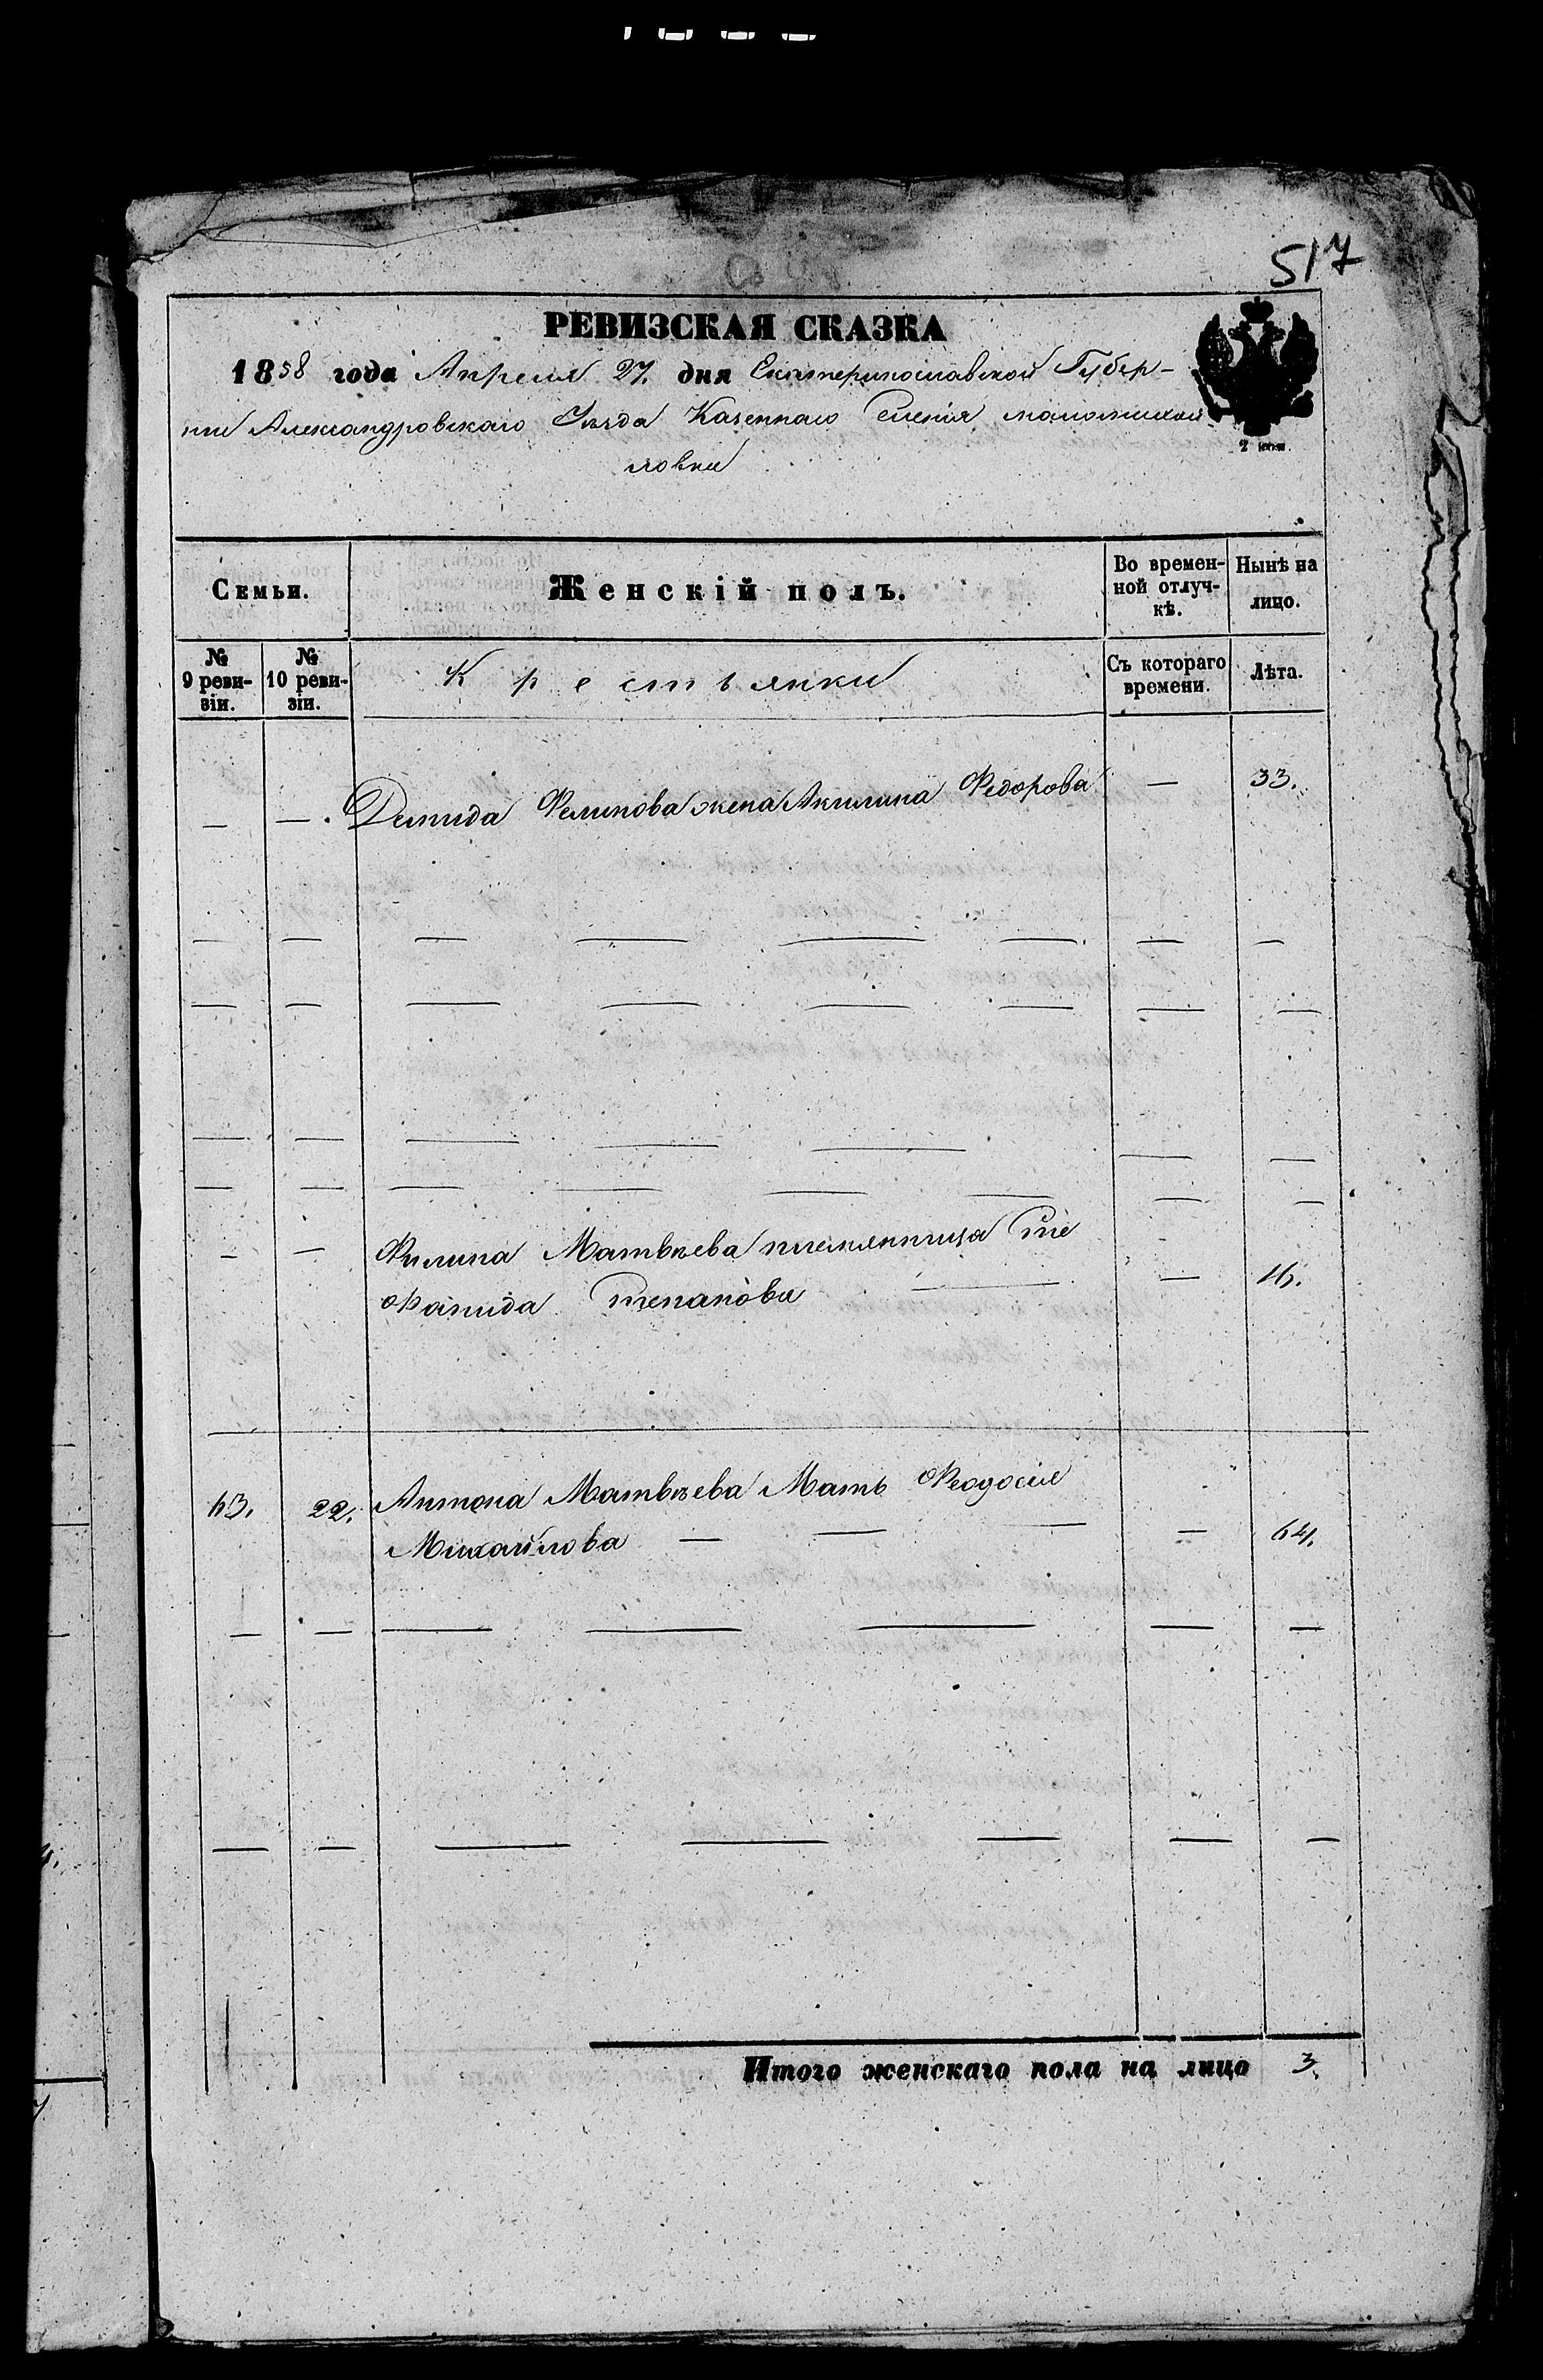 517
РЕВИЗСКАЯ СКАЗКА
1858 года Апреля 27. дня Екатеринославской Губер-
нии Александровскаго Уезда Казеннаго Селенія маломихай
ловки
2 коп.
Семьи.
Женскій полъ.
Во времен-
ной отлуч-
кѣ.
Нынѣ на
лицо.
№
9 реви-
зіи.
№
10 реви-
зіи.
Крестьянки
Съ котораго
времени.
Лѣта.
— —. Демида Филипова жена Акилина Федорова — 33.
— — Филипа Матвѣева племянница Сте
фанида Степанова — 16.
63. 22. Антона Матвѣева Мать Феодосия
Михайлова — — — — 64.
Итого женскаго пола на лицо 3.